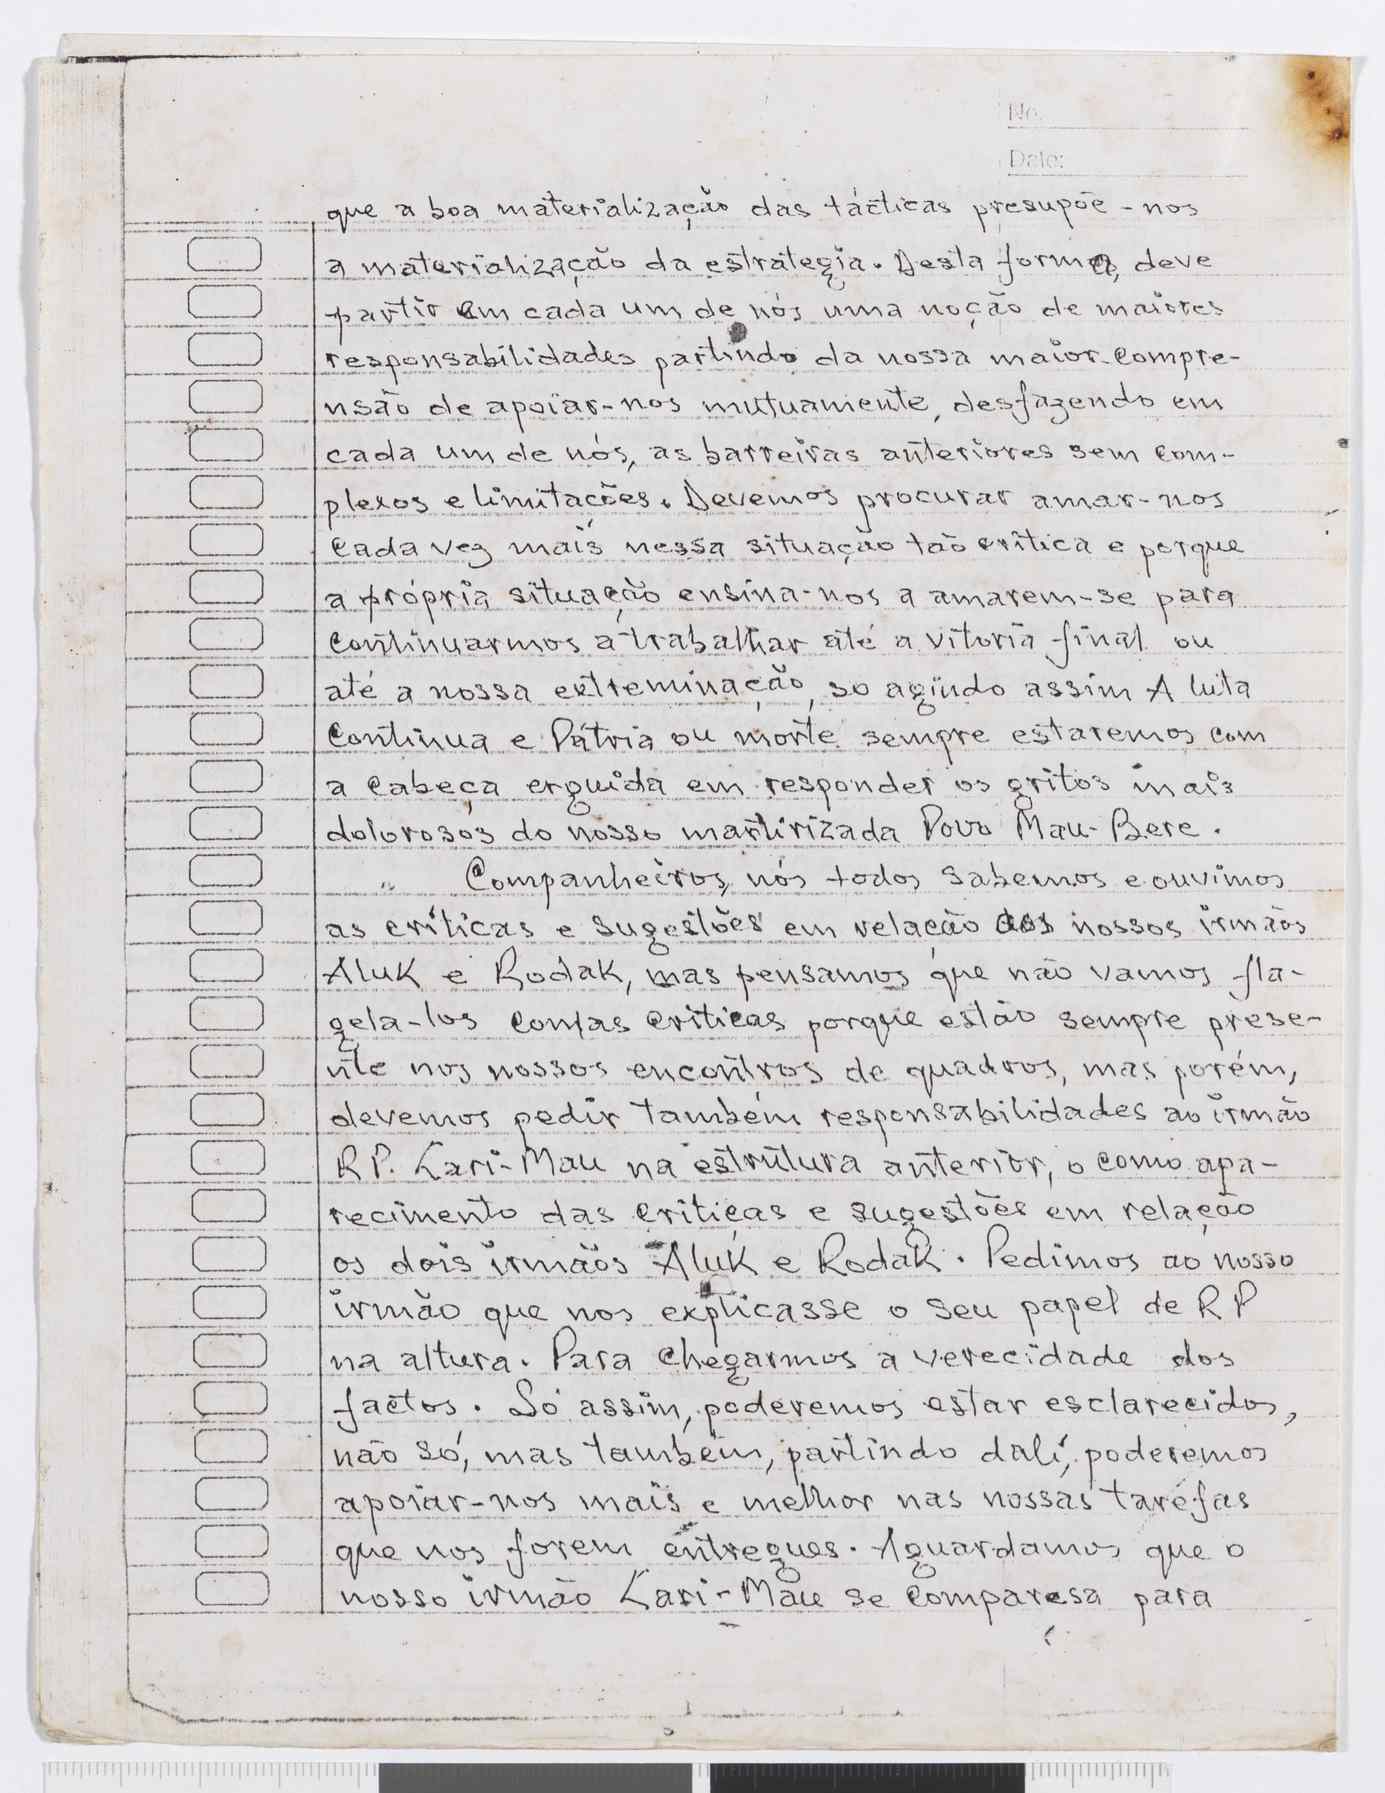 No.
Date:
que a boa materialização das tácticas presupõe-nos
a materialização da estrategia. Desta forma, deve
partir em cada um de nós uma noção de maiores
responsabilidades partindo da nossa maior compre-
nsão de apoiar-nos mutuamente, desfazendo em
cada um de nós, as barreiras anteriores sem com-
plexos e limitações. Devemos procurar amar-nos
cada vez mais nessa situação tão crítica e porque
a própria situação ensina-nos a amarem-se para
continuarmos a trabalhar até a vitoria final ou
até a nossa extreminação, so agindo assim A luta
Continua e Pátria ou morte sempre estaremos com
a cabeça erguida em responder os gritos mais
dolorosos do nosso martirizada Povo Mau-Bere.
" Companheiros, nós todos sabemos e ouvimos
as críticas e sugestões em relação aos nossos irmãos
Aluk e Rodak, mas pensamos que não vamos fla-
gela-los com as criticas porque estão sempre prese-
nte nos nossos encontros de quadros, mas porém,
devemos pedir também responsabilidades ao irmão
RP. Lari-Mau na estrutura anterior, o como apa-
recimento das criticas e sugestões em relação
os dois irmãos Aluk e Rodak. Pedimos ao nosso
irmão que nos explicasse o seu papel de RP
na altura. Para chegarmos a verecidade dos
factos. Só assim, poderemos estar esclarecidos,
não só, mas também, partindo dalí, poderemos
apoiar-nos mais e melhor nas nossas tarefas
que nos forem entregues. Aguardamos que o
nosso irmão Lari-Mau se comparesa para